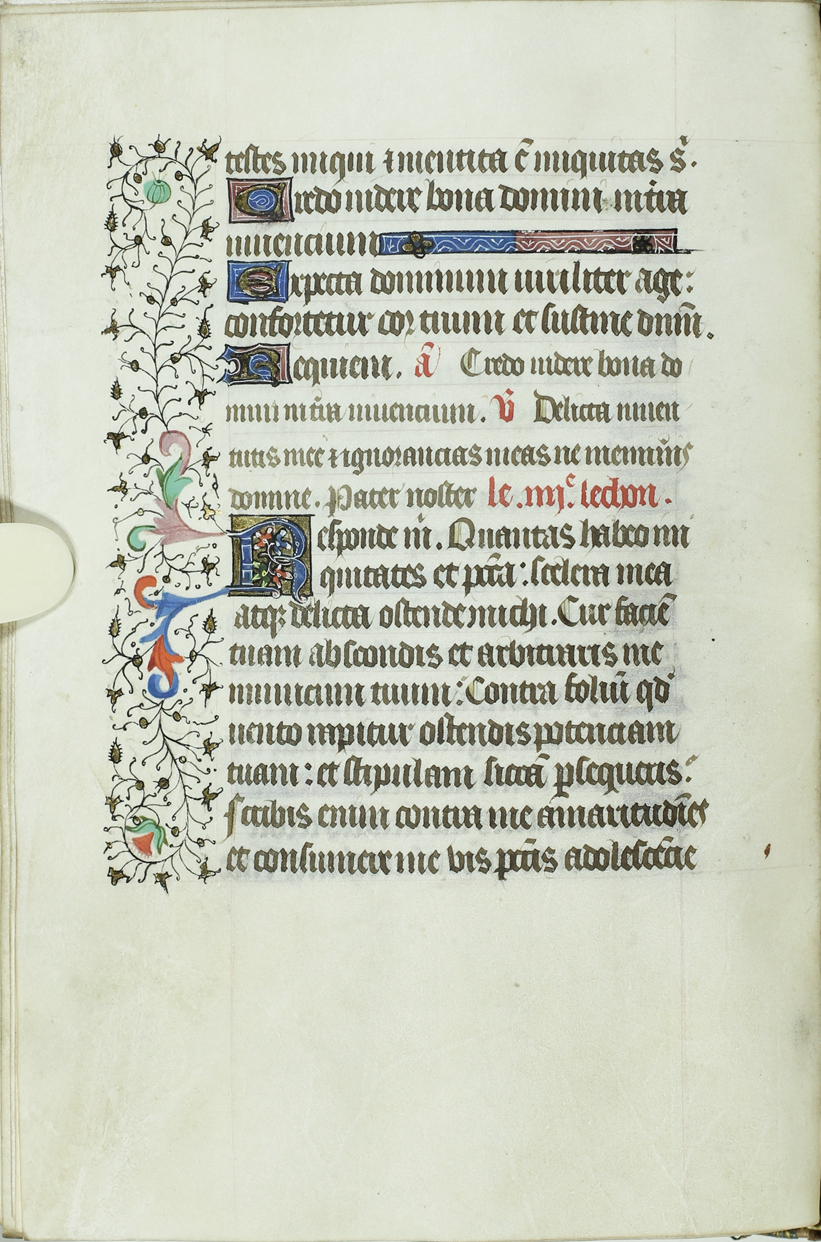 testes iniqui ⁊ mentita ē iniquitas s̄.
Credo uidere bona domini in tr̄a
uiuencium
Expecta dominum uiriliter age:
confortetur cor tuum et sustine dnm̄.
Requiem. an̄ Credo uidere bona do
mini in tr̄a uiuencium. v̄ Delicta iuuen
tutis mee ⁊ ignorancias meas ne meminīs
domine. Pater noster le .iiij.ᵉ lechon.
Responde m̄. Quantas habeo ini
quitates et pctā: scelera mea
atqꝫ delicta ostende michi. Cur faciē
tuam abscondis et arbitraris me
inimicum tuum: Contra foliū qd̄
uento rapitur ostendis potenciam
tuam: et stipulam siccā ꝑsequeris.
scribis enim contra me amaritudīes
et consumere me vis pctīs adolescēcie